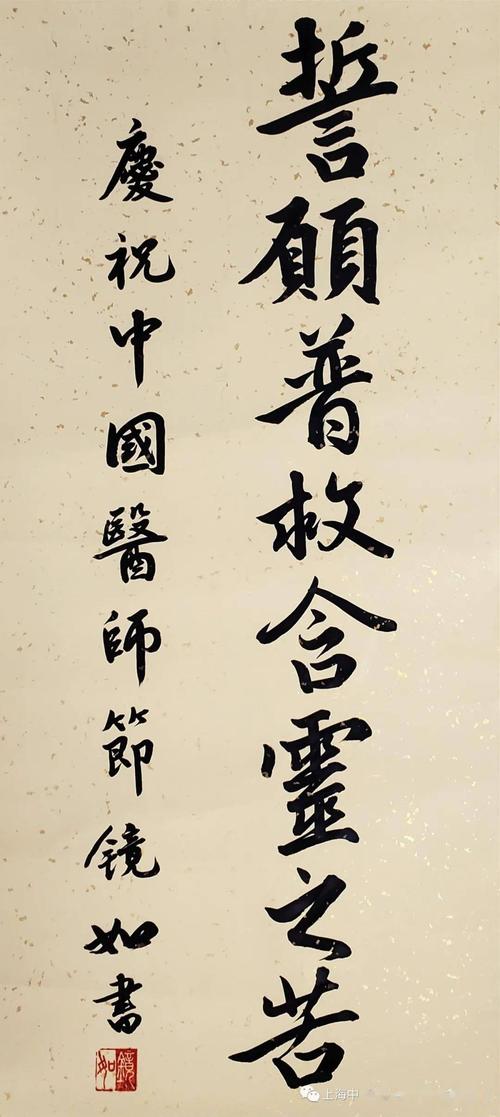 誓願普救含靈之苦
慶祝中國醫師節鏡如書
鏡如
上海中